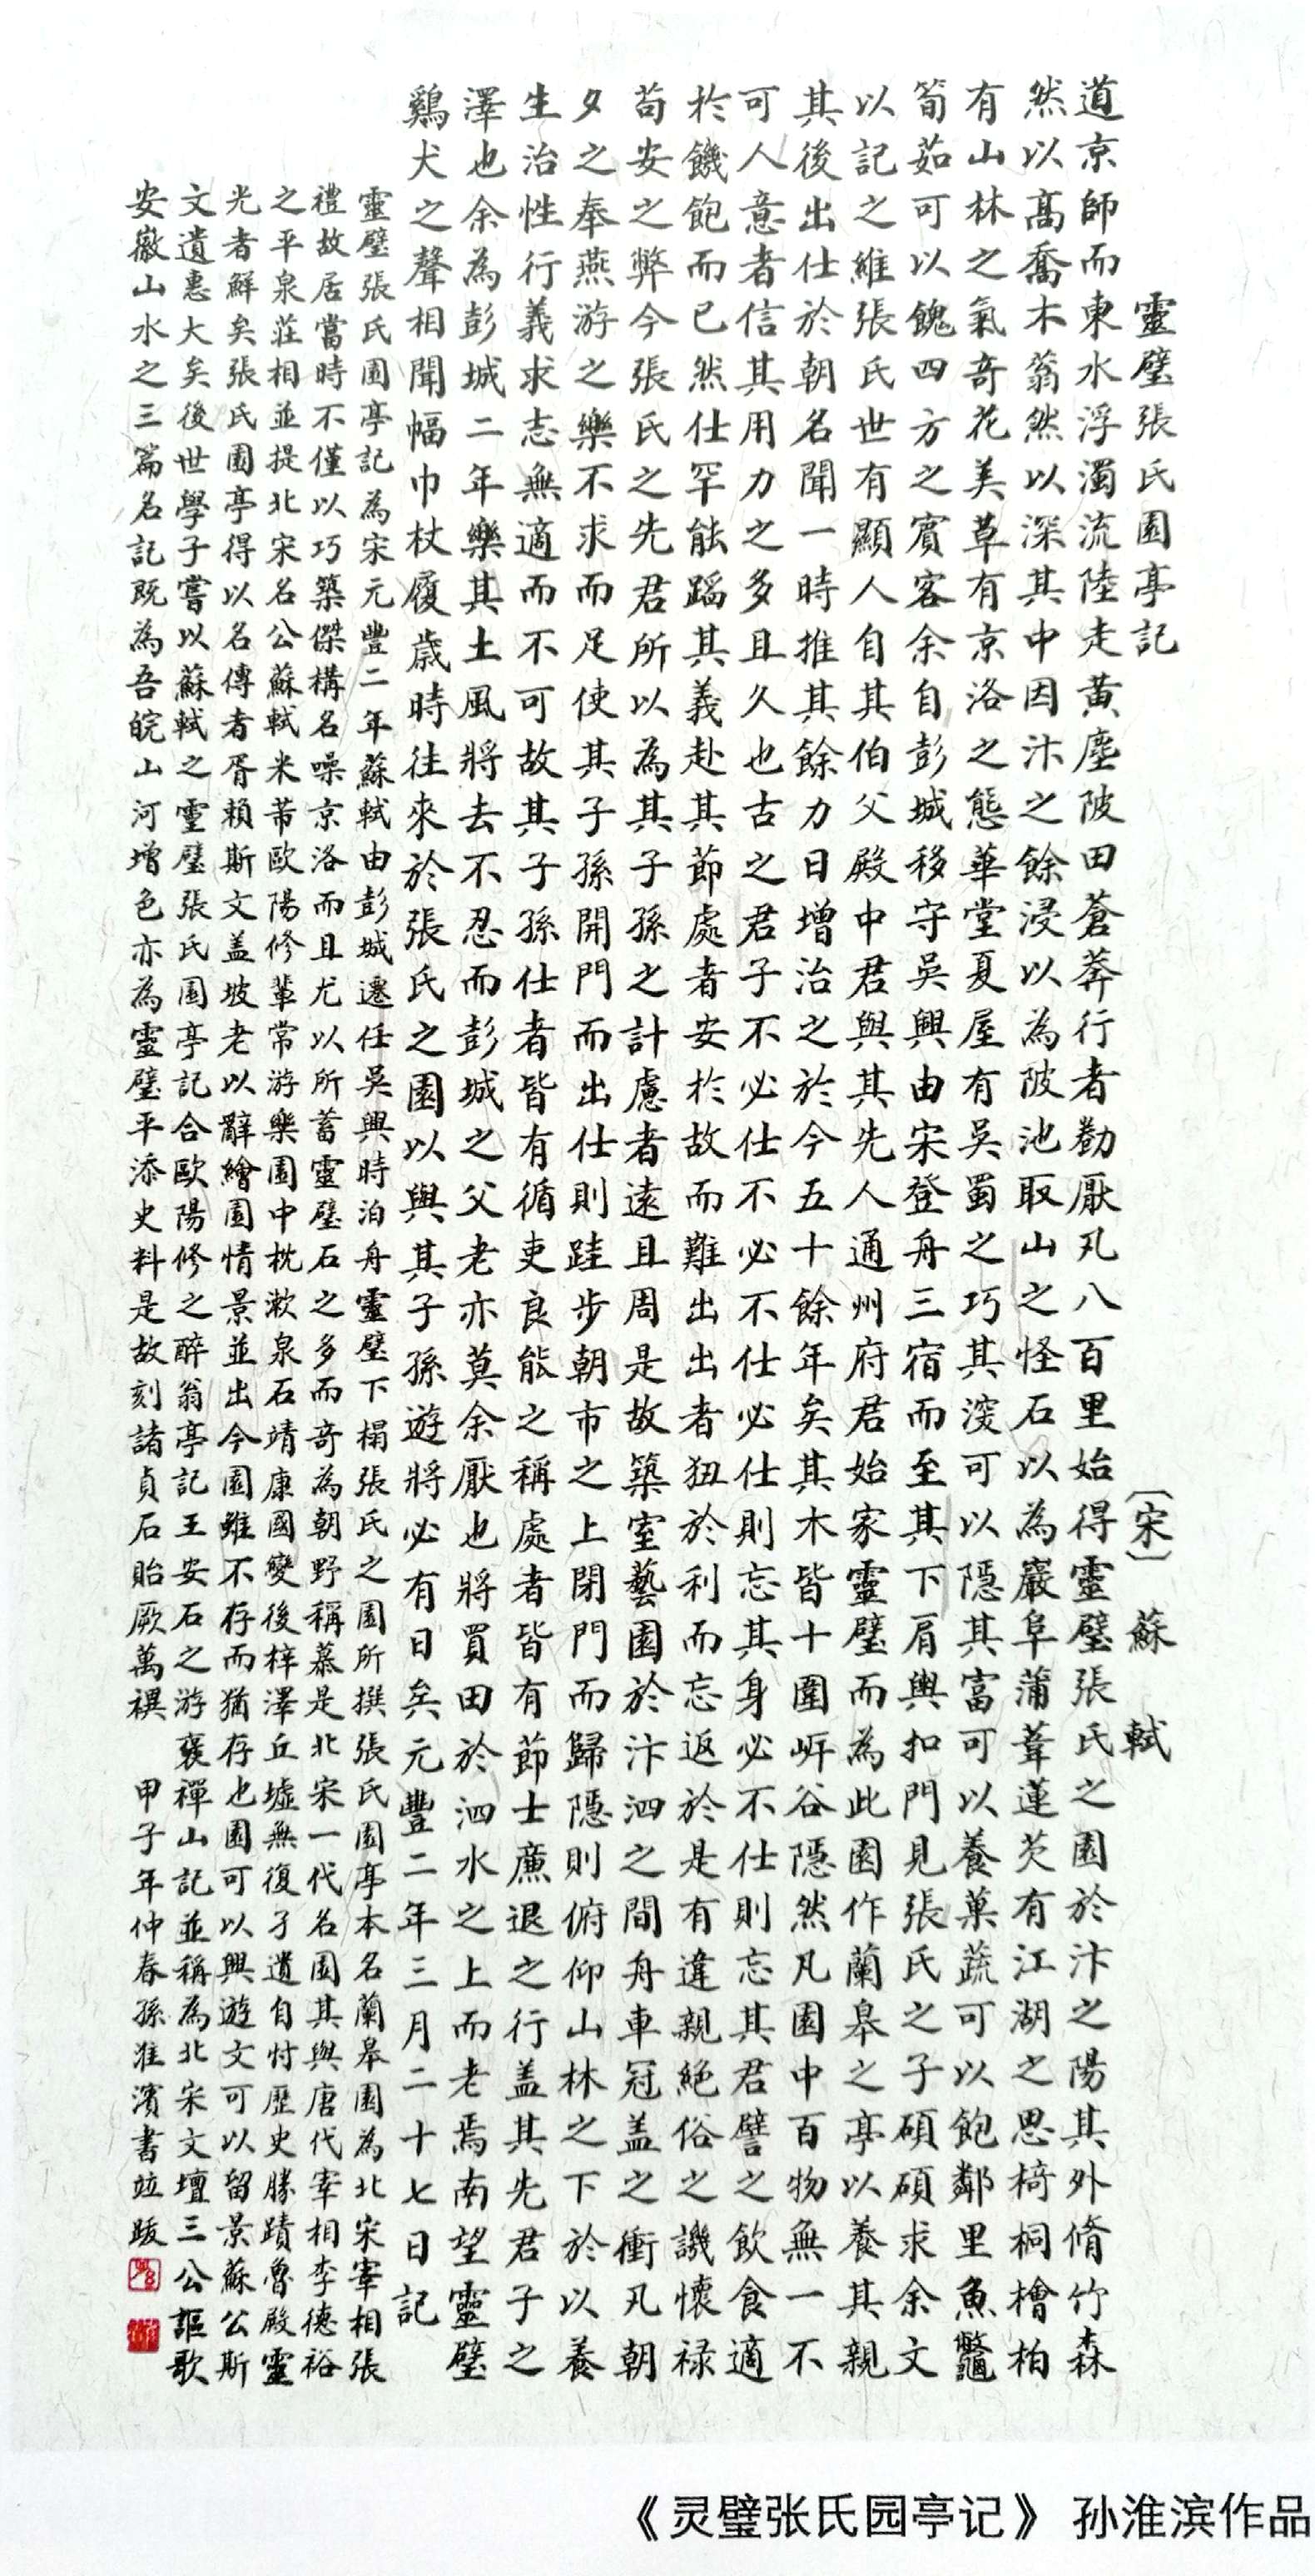 靈璧張氏園亭記　〔宋〕蘇　軾
道京師而東水浮濁流陸走黃塵陂田蒼莽行者勌厭凡八百里始得靈璧張氏之園於汴之陽其外脩竹森
然以高喬木蓊然以深其中因汴之餘浸以為陂池取山之怪石以為巖阜蒲葦蓮芡有江湖之思椅桐檜柏
有山林之氣奇花美草有京洛之態華堂夏屋有吳蜀之巧其深可以隱其富可以養菓蔬可以飽鄰里魚鼈
筍茹可以餽四方之賓客余自彭城移守吳興由宋登舟三宿而至其下肩輿扣門見張氏之子碩碩求余文
以記之維張氏世有顯人自其伯父殿中君與其先人通州府君始家靈璧而為此園作蘭皋之亭以養其親
其後出仕於朝名聞一時推其餘力日增治之於今五十餘年矣其木皆十圍岍谷隱然凡園中百物無一不
可人意者信其用力之多且久也古之君子不必仕不必不仕必仕則忘其身必不仕則忘其君譬之飲食適
於饑飽而已然仕罕能蹈其義赴其節處者安於故而難出出者狃於利而忘返於是有違親絕俗之譏懷祿
苟安之弊今張氏之先君所以為其子孫之計慮者遠且周是故築室藝園於汴泗之間舟車冠盖之衝凡朝
夕之奉燕游之樂不求而足使其子孫開門而出仕則跬步朝市之上閉門而歸隱則俯仰山林之下於以養
生治性行義求志無適而不可故其子孫仕者皆有循吏良能之稱處者皆有節士廉退之行盖其先君子之
澤也余為彭城二年樂其土風將去不忍而彭城之父老亦莫余厭也將買田於泗水之上而老焉南望靈璧
鷄犬之聲相聞幅巾杖履歲時往來於張氏之園以與其子孫遊將必有日矣元豐二年三月二十七日記
靈璧張氏園亭記為宋元豐二年蘇軾由彭城遷任吳興時泊舟靈璧下榻張氏之園所撰張氏園亭本名蘭皋園為北宋宰相張
禮故居當時不僅以巧築傑構名噪京洛而且尤以所蓄靈璧石之多而奇為朝野稱慕是北宋一代名園其與唐代宰相李德裕
之平泉莊相並提北宋名公蘇軾米芾歐陽修輩常游樂園中枕漱泉石靖康國變後梓澤丘墟無復孑遺自忖歷史勝蹟魯殿靈
光者鮮矣張氏園亭得以名傳者胥賴斯文盖坡老以辭繪園情景並出今園雖不存而猶存也園可以興遊文可以留景蘇公斯
文遺惠大矣後世學子嘗以蘇軾之靈璧張氏園亭記合歐陽修之醉翁亭記王安石之游襃禪山記並稱為北宋文壇三公謳歌
安徽山水之三篇名記既為吾皖山河增色亦為靈璧平添史料是故刻諸貞石貽厥萬禩　甲子年仲春孫淮濱書並跋
《灵璧张氏园亭记》 孙淮滨作品